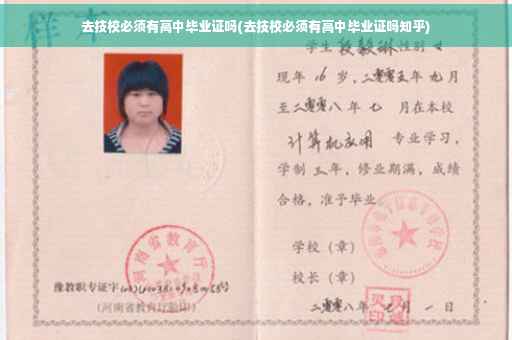 去技校必须有高中毕业证吗(去技校必须有高中毕业证吗知乎)
样本
学生段毅琳性别女
现年16岁，二零零五年九月
至二零零八年七月在本校
计算机应用 专业学习，
学制三年，修业期满，成绩
合格，准予毕业。
学校（章）
校长（章）
二零零八年七月一日
河南省教育厅
豫教职专证字
(河南省教育厅验印)